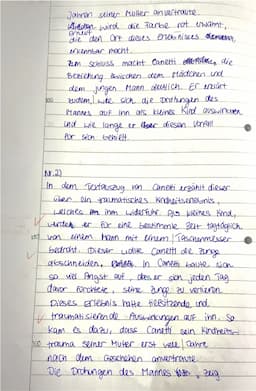 Jahren seiner Mutter anvertraute.
wird die Farbe rot erwähnt,
erneut
die den Ort dieses Erlebnisses
erkennbar macht.
Zum Schluss macht Canetti die
Beziehung zwischen dem Mädchen und
dem jungen Mann deutlich. Er erklärt
zudem, wie sich die Drohungen des
Mannes auf ihn als kleines Kind auswirkten
und wie lange er diesen Vorfall
für sich behielt.
Nr. 2)
In dem Textauszug von Canetti erzählt dieser
über ein traumatisches Kindheitserlebnis,
welches ihm widerfuhr. Als kleines Kind,
wurde er für eine bestimmte Zeit tagtäglich
von einem Mann mit einem Taschenmesser
bedroht. Dieser wollte Canetti die Zunge
abschneiden. In Canetti baute sich
so viel Angst auf, dass er sich jeden Tag
davor fürchtete, seine Zunge zu verlieren.
Dieses Erlebnis hatte und
traumatisierende Auswirkungen auf ihn. So
kam es dazu, dass Canetti sein Kindheits-
trauma seiner Mutter erst viele Jahre
nach dem Geschehen anvertraute.
Die Drohungen des Mannes zeig